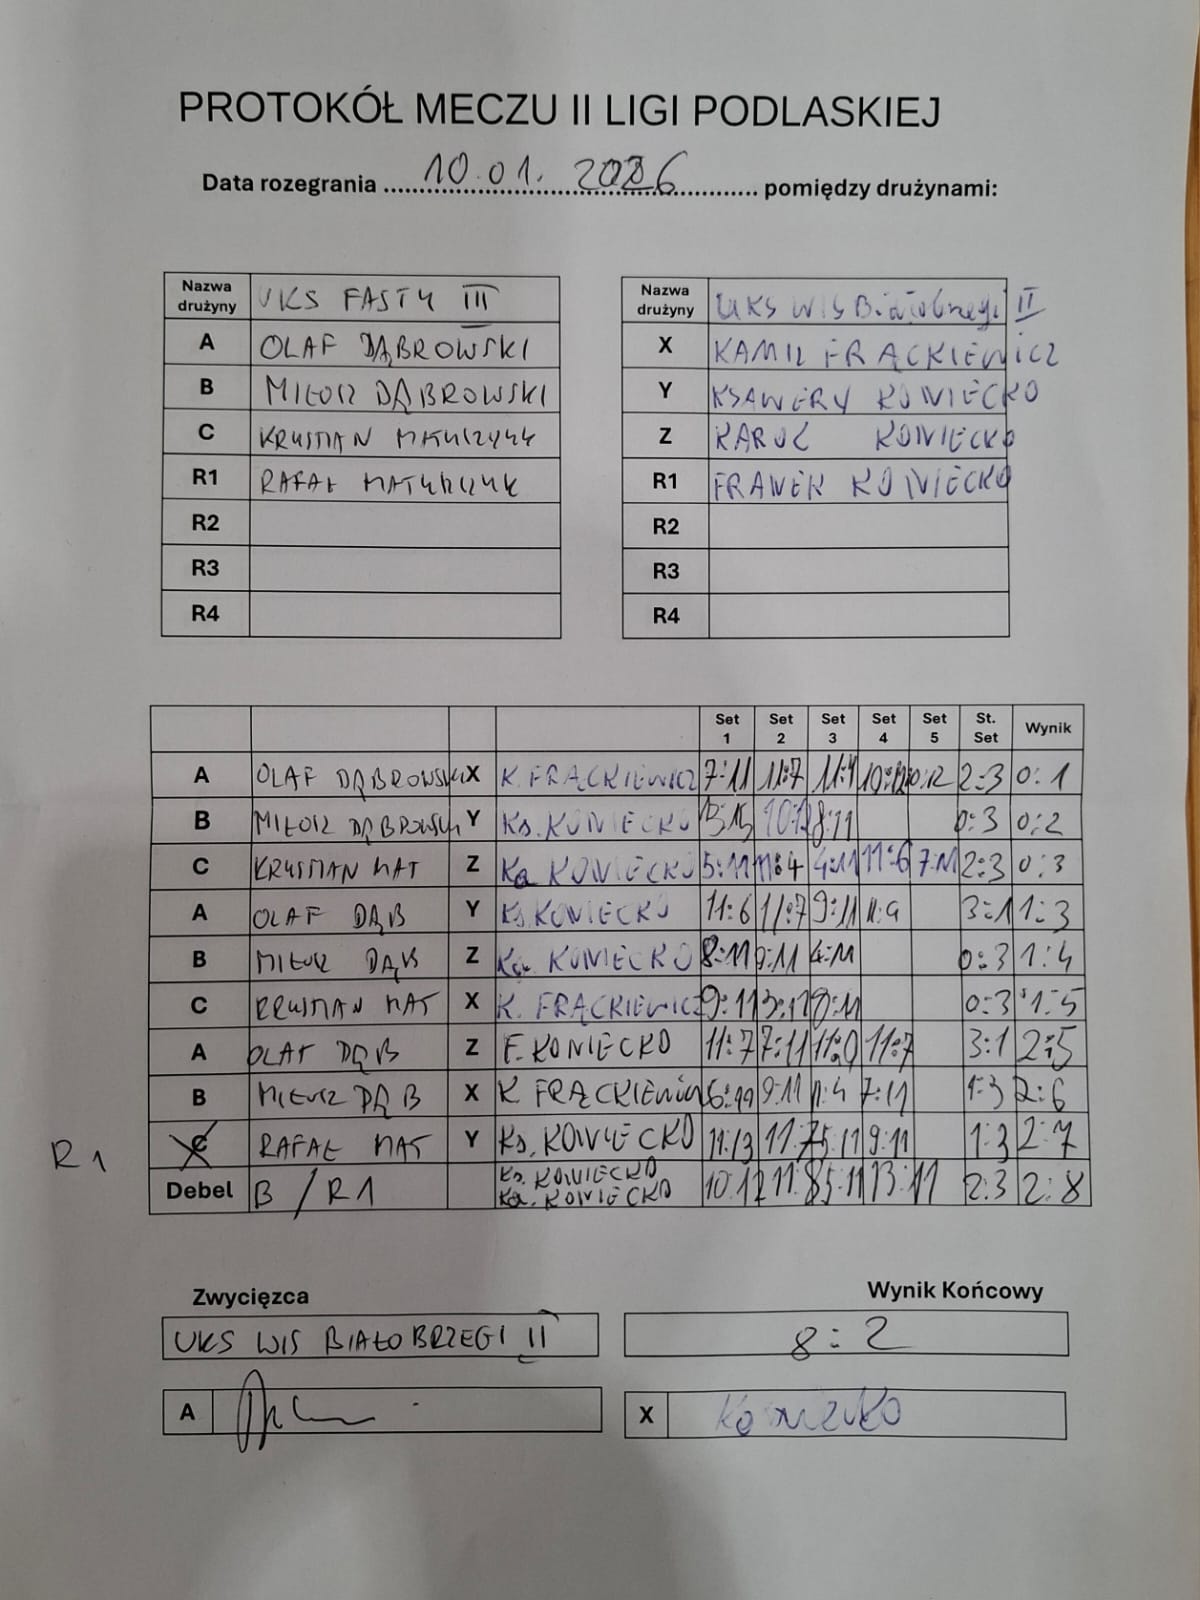 PROTOKÓŁ MECZU II LIGI PODLASKIEJ
Data rozegrania 10.01.2026 pomiędzy drużynami:
Nazwa drużyny UKS FASTY III
A OLAF DĄBROWSKI
B MIŁOSZ DĄBROWSKI
C KRYSTIAN MATYSZCZYK
R1 RAFAŁ
R2
R3
R4
Nazwa drużyny UKS WIS Białobrzegi II
X KAMIL FRĄCKIEWICZ
Y KSAWERY KONIECKO
Z KAROL KONIECKO
R1 FRANEK KONIECKO
R2
R3
R4
Set 1 Set 2 Set 3 Set 4 Set 5 St. Set Wynik
A OLAF DĄBROWSKI X K. FRĄCKIEWICZ 7:11 11:7 11:4 10:12 2:3 0:1
B MIŁOSZ DĄBROWSKI Y Ks. KONIECKO 13:15 8:11 0:3 0:2
C KRYSTIAN MAT Z Ka KONIECKO 5:11 11:4 4:11 11:6 7:11 2:3 0:3
A OLAF DĄB Y Ks. KONIECKO 11:6 11:7 9:11 11:9 3:1 1:3
B MIŁOSZ DĄB Z Ka. KONIECKO 8:11 9:11 4:11 0:3 1:4
C KRYSTIAN MAT X K. FRĄCKIEWICZ 9:11 8:11 0:3 1:5
A OLAF DĄB Z F. KONIECKO 11:7 7:11 11:0 11:7 3:1 2:5
B MIŁOSZ DĄB X K FRĄCKIEWICZ 6:11 9:11 11:4 7:11 1:3 2:6
R1 C RAFAŁ MAT Y Ks. KONIECKO 11:13 11:7 5:11 9:11 1:3 2:7
Debel B / R1 Ks. KONIECKO 10:12 11:8 5:11 13:11 2:3 2:8
Ka. KONIECKO
Zwycięzca
Wynik Końcowy
UKS WIS BIAŁOBRZEGI II
8:2
A
X Koniecko